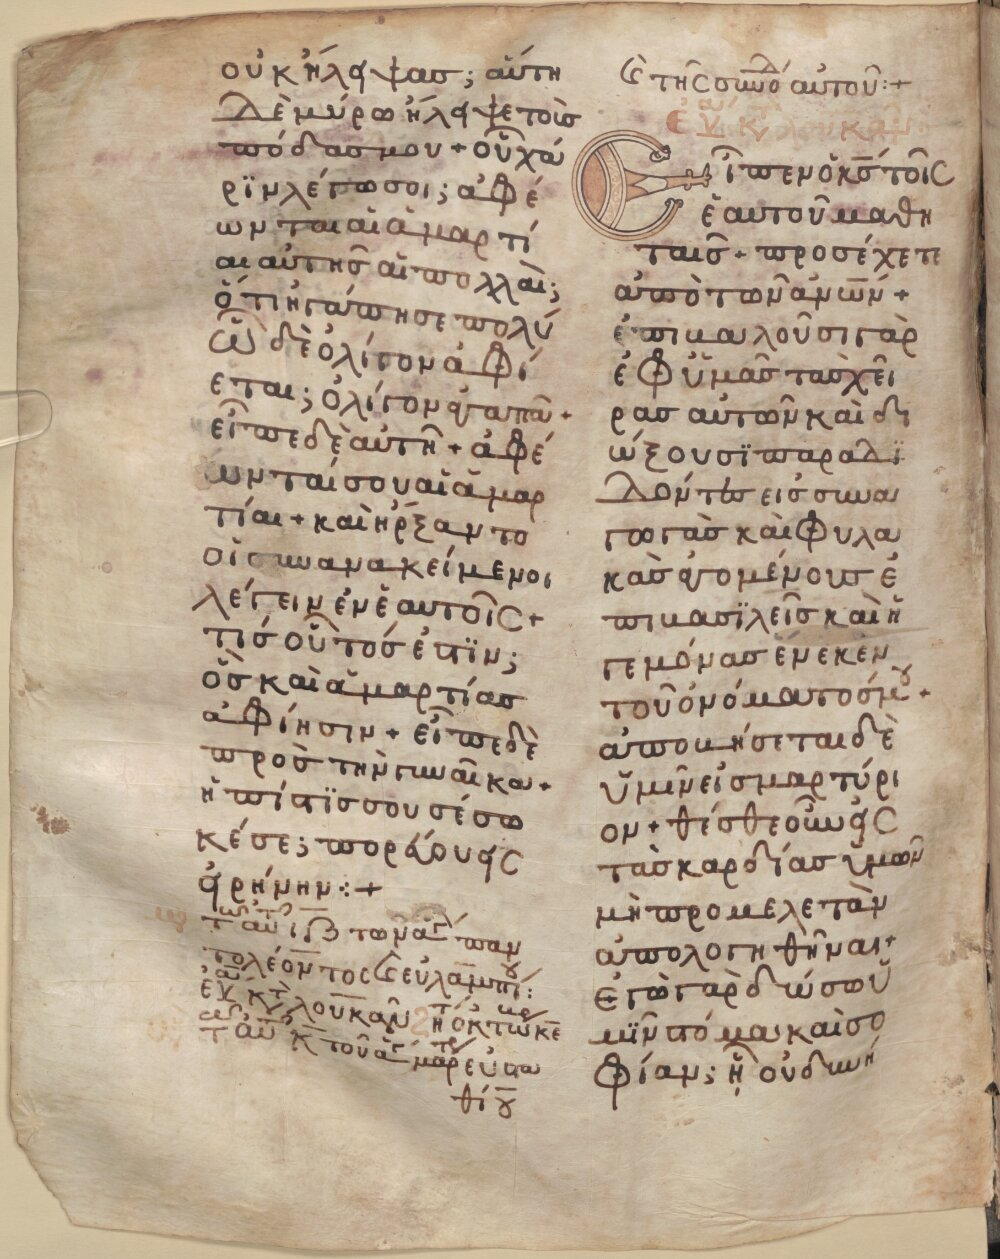 οὐκ ἤλειψας; αὕτη
δὲ μύρω ἤλειψε τοὺς
πόδας μου + οὗ χά
ριν λέγω σοι; ἀφέ
ωνται αἱ ἁμαρτί
αι αὐτῆς αἱ πολλαὶ;
ὅτι ἠγάπησε πολύ
ὧ δὲ ὀλίγον ἀφί
εται; ὀλίγον ἀγαπᾶ +
εἶπε δὲ αὐτῆ + ἀφέ
ωνταί σου αἱ ἁμαρ
τίαι + καὶ ἤρξαντο
οἱ συνανακείμενοι
λέγειν ἐν ἑαυτοῖς +
τίς οὗτός ἐστϊν;
ὃς καὶ ἁμαρτίας
ἀφίησιν + εἶπε δὲ
πρὸς τὴν γυναῖκα +
ἡ πίστϊς σου σέσω
κέ σε; πορεύου εἰς
εἰρήνην:+
πων
τολέοντος εὐλαμπί:
λουκᾶν
εὐστα
θίγ
τῆς συνοδ αὐτοῦ:+
ἐκ λουκᾶν
Εἶπεν ὁ κς τοῖς
ἑαυτοῦ μαθη
ταῖς + προσέχετε
ἀπὸ τῶν ἀνων +
ἐπιβαλοῦσι γὰρ
ἐφ ὑμᾶς τὰς χεῖ
ρας αὐτῶν καὶ δι
ώξουσϊ παραδϊ
δόντες εἰς συνα
γωγὰς καὶ φυλα
κὰς ἀγομένους ἐ
πι βασϊλεῖς καὶ ἡ
γεμόνας ἕνεκεν
τοῦ ὀνόματός μου +
ἀποβήσεται δὲ
ὑμῖν εἰς μαρτύρι
ον + θέσθε οὖν εἰς
τὰς καρδίας ὑμῶν
μὴ προμελετὰν
ἀπολογηθῆναι +
ἐγὼ γὰρ δώσω ὑ
μῖν στόμα καὶ σο
φίαν; ἧ οὐ δυνή